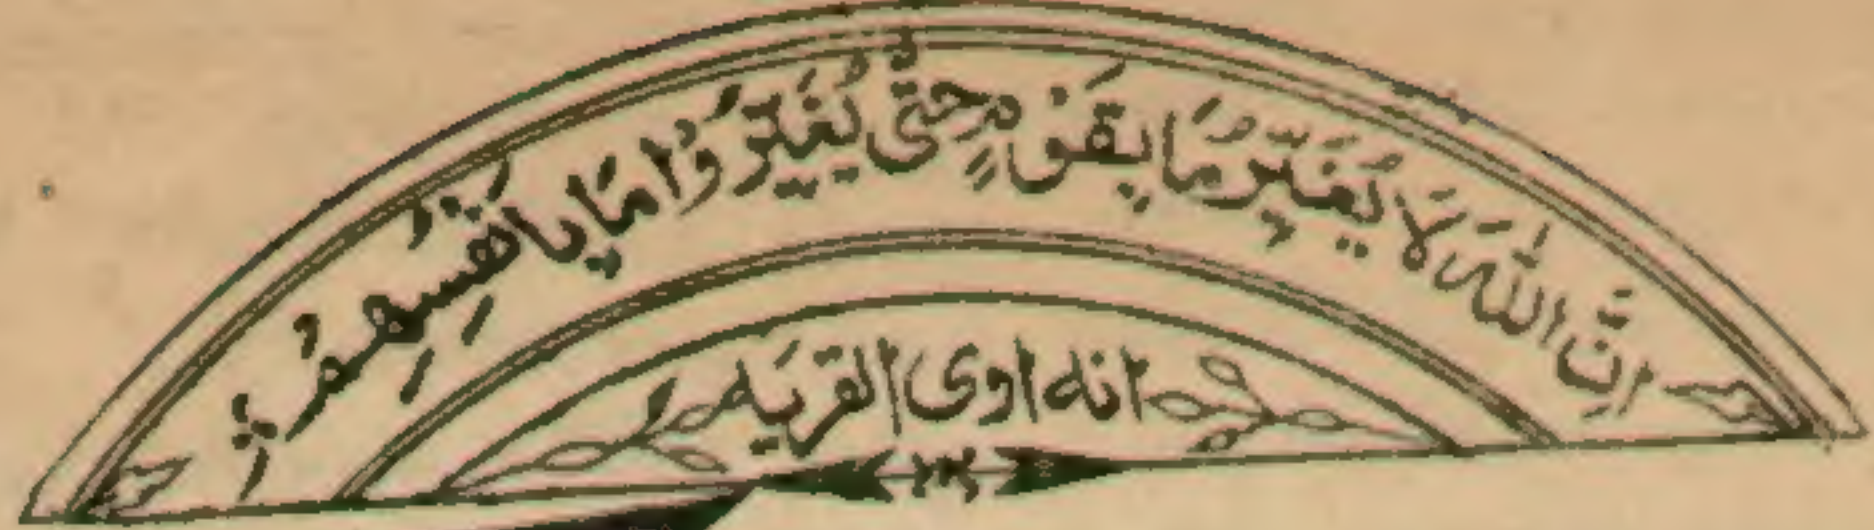 اِنَّ اللّٰهَ لَا يُغَيِّرُ مَا بِقَوْمٍ حَتّٰى يُغَيِّرُوْا مَا بِاَنْفُسِهِمْ
انه اوى القريه